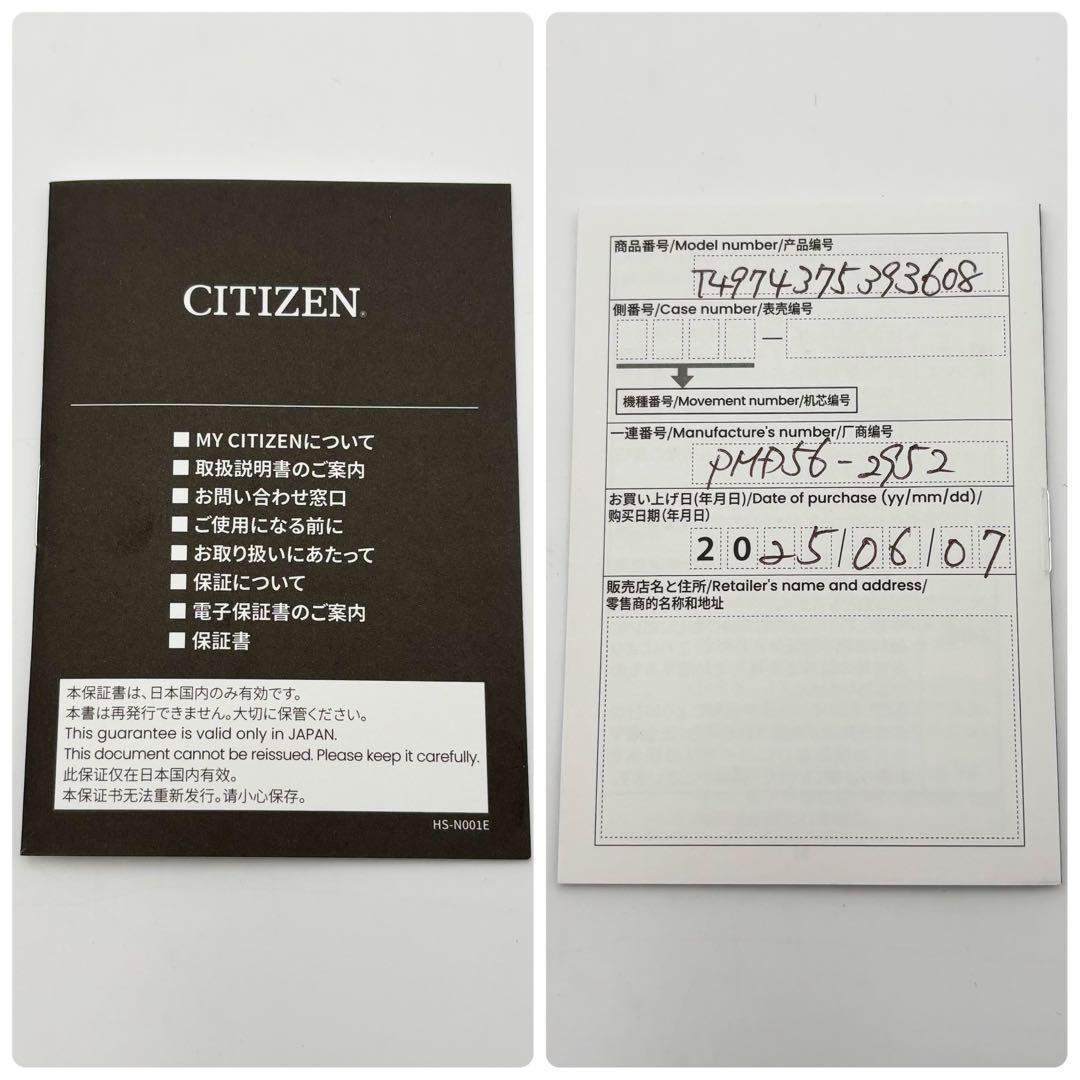 CITIZEN®
■ MY CITIZENについて
■ 取扱説明書のご案内
■ お問い合わせ窓口
■ ご使用になる前に
■ お取り扱いにあたって
■ 保証について
■ 電子保証書のご案内
■ 保証書
本保証書は、日本国内のみ有効です。
本書は再発行できません。大切に保管ください。
This guarantee is valid only in JAPAN.
This document cannot be reissued. Please keep it carefully.
此保证仅在日本国内有效。
本保证书无法重新发行。请小心保存。
HS-N001E
商品番号/Model number/产品编号
T4974375393608
側番号/Case number/表壳编号
機種番号/Movement number/机芯编号
一連番号/Manufacture's number/厂商编号
PMD56-2952
お買い上げ日(年月日)/Date of purchase (yy/mm/dd)/
购买日期(年月日)
2025/06/07
販売店名と住所/Retailer's name and address/
零售商的名称和地址